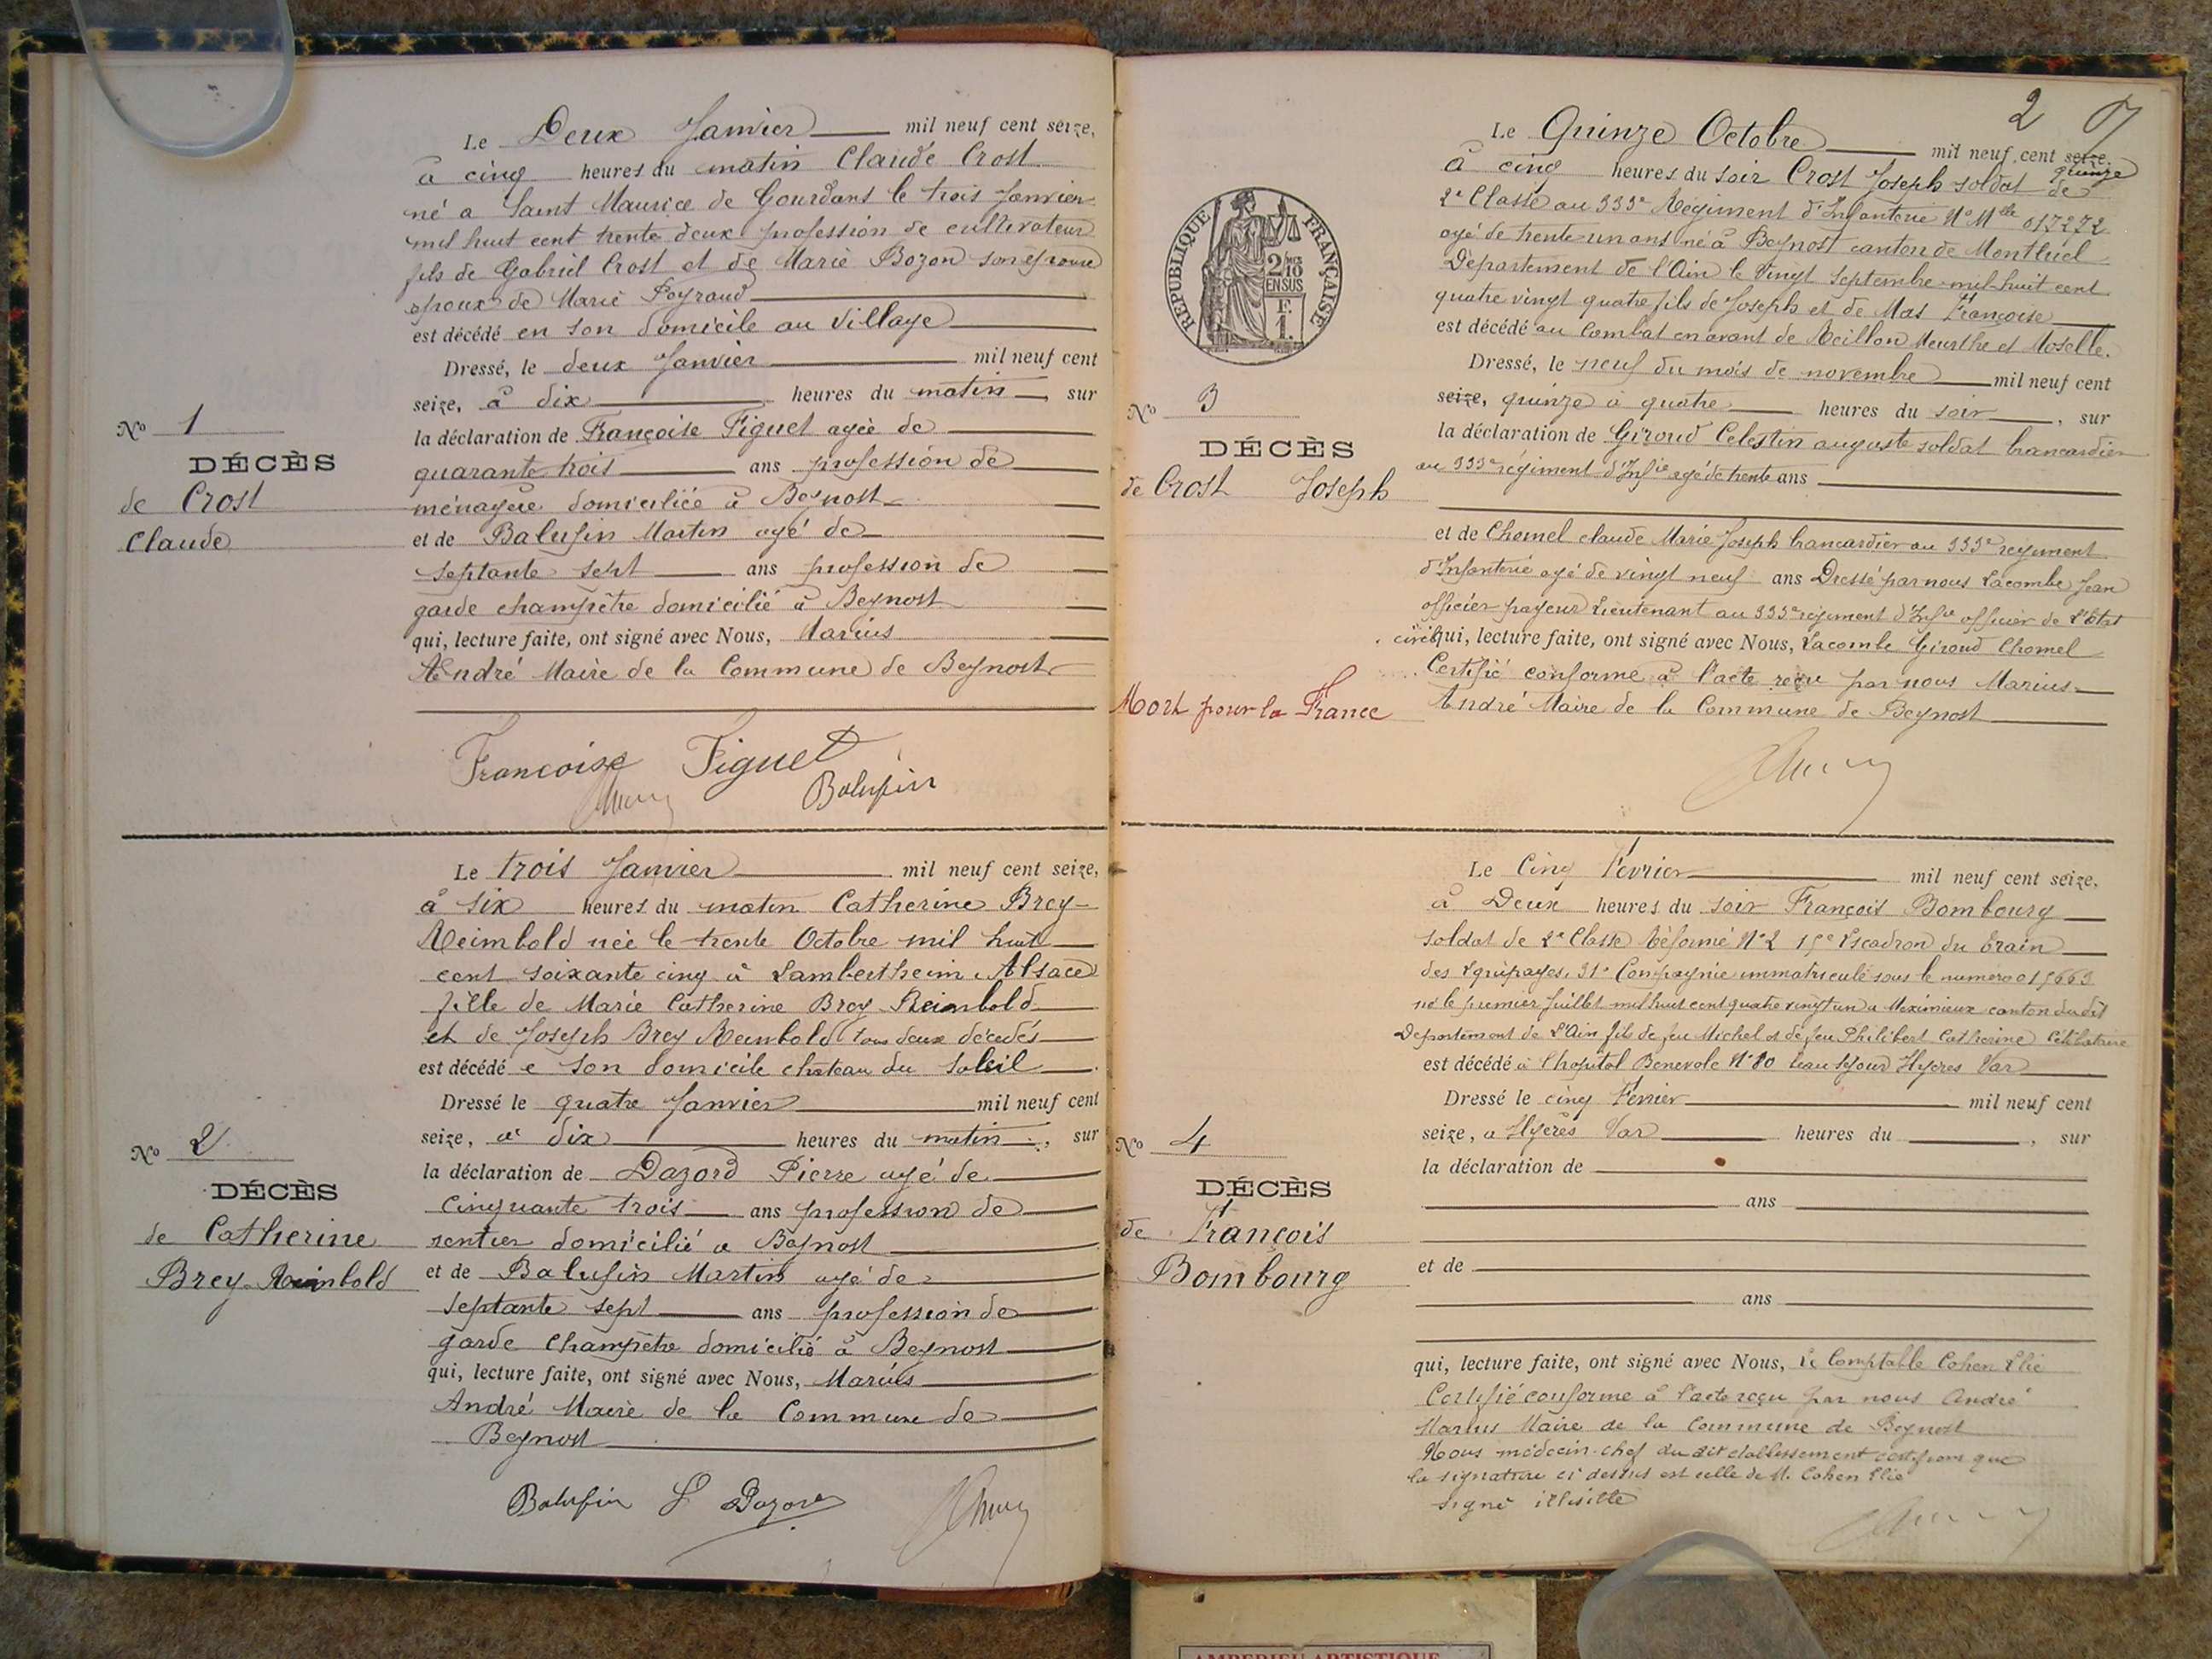 Le Deux Janvier mil neuf cent seize,
à cinq heures du matin Claude Crost
né a Saint Maurice de Gourdans le trois Janvier
mil huit cent trente deux profession de cultivateur
fils de Gabriel Crost et de Marie Bozon son épouse
époux de Marie Peyraud
est décédé en son domicile au village
Dressé, le deux Janvier mil neuf cent
seize, à dix heures du matin, sur
la déclaration de Françoise Figuet agée de
quarante trois ans profession de
ménagère domiciliée à Beynost
et de Balufin Martin agé de
septante sept ans profession de
garde champêtre domicilié à Beynost
qui, lecture faite, ont signé avec Nous, Marius
André Maire de la Commune de Beynost
Francoise Figuet
Balufin
No 1
DÉCÈS
de Crost
Claude
Le trois Janvier mil neuf cent seize,
à six heures du matin Catherine Brey-
Reimbold née le trente Octobre mil huit
cent soixante cinq à Lambertheim Alsace
fille de Marie Catherine Brey Reimbold
et de Joseph Brey Reimbold tous deux décédés
est décédé e son domicile chateau du Soleil
Dressé le quatre Janvier mil neuf cent
seize, à dix heures du matin, sur
la déclaration de Dazord Pierre agé de
cinquante trois ans profession de
rentier domicilié a Beynost
et de Balufin Martin agé de
septante sept ans profession de
garde champêtre domicilié à Beynost
qui, lecture faite, ont signé avec Nous, Marius
André Maire de la Commune de
Beynost
Balufin P Dazord
No 2
DÉCÈS
de Catherine
Brey-Reimbold
2
Le Quinze Octobre mil neuf cent seize.
quinze
à cinq heures du soir Crost Joseph soldat de
2e Classe au 333e Régiment d'Infanterie No Mlle 017272
agé de trente-un ans né à Beynost canton de Montluel
Département de l'Ain le vingt Septembre mil-huit cent
quatre vingt quatre fils de Joseph et de Mas Françoise
est décédé au Combat en avant de Reillon Meurthe et Moselle.
Dressé, le neuf du mois de novembre mil neuf cent
seize, quinze à quatre heures du soir, sur
la déclaration de Giroud Celestin auguste soldat brancardier
au 333e régiment d'Infie agé de trente ans
et de Chomel claude Marie Joseph brancardier au 333e regiment
d'Infanterie agé de vingt neuf ans Dressé par nous Lacombe Jean
officier payeur Lieutenant au 333e régiment d'Infie officier de l'Etat
civil qui, lecture faite, ont signé avec Nous, Lacombe Giroud Chomel
Certifié conforme à l'acte reçu par nous Marius
André Maire de la Commune de Beynost
RÉPUBLIQUE FRANÇAISE
2/10
EN SUS
F.
1.
No 3
DÉCÈS
de Crost Joseph
Mort pour la France
Le Cinq Février mil neuf cent seize.
à Deux heures du soir François Bombourg
soldat de 2e Classe Réformé No 2 15e Escadron du train
des Equipages, 31e Compagnie immatriculé sous le numero 015663
né le premier Juillet mil huit cent quatre vingt un a Meximieux canton dudit
Département de l'Ain fils de feu Michel et de feu Philibert Catherine Célibataire
est décédé à l'hopital Benevole No 80 beau Séjour Hyères Var
Dressé le cinq Février mil neuf cent
seize, a Hyères Var heures du , sur
la déclaration de
ans
et de
ans
qui, lecture faite, ont signé avec Nous, Le Comptable Cohen Elie
Certifié conforme à l'acte reçu par nous André
Marius Maire de la Commune de Beynost
Nous médecin-chef du dit établissement certifions que
la signature ci dessus est celle de M. Cohen Elie
signé illisible
No 4
DÉCÈS
de François
Bombourg
AMBERIEU ARTISTIQUE